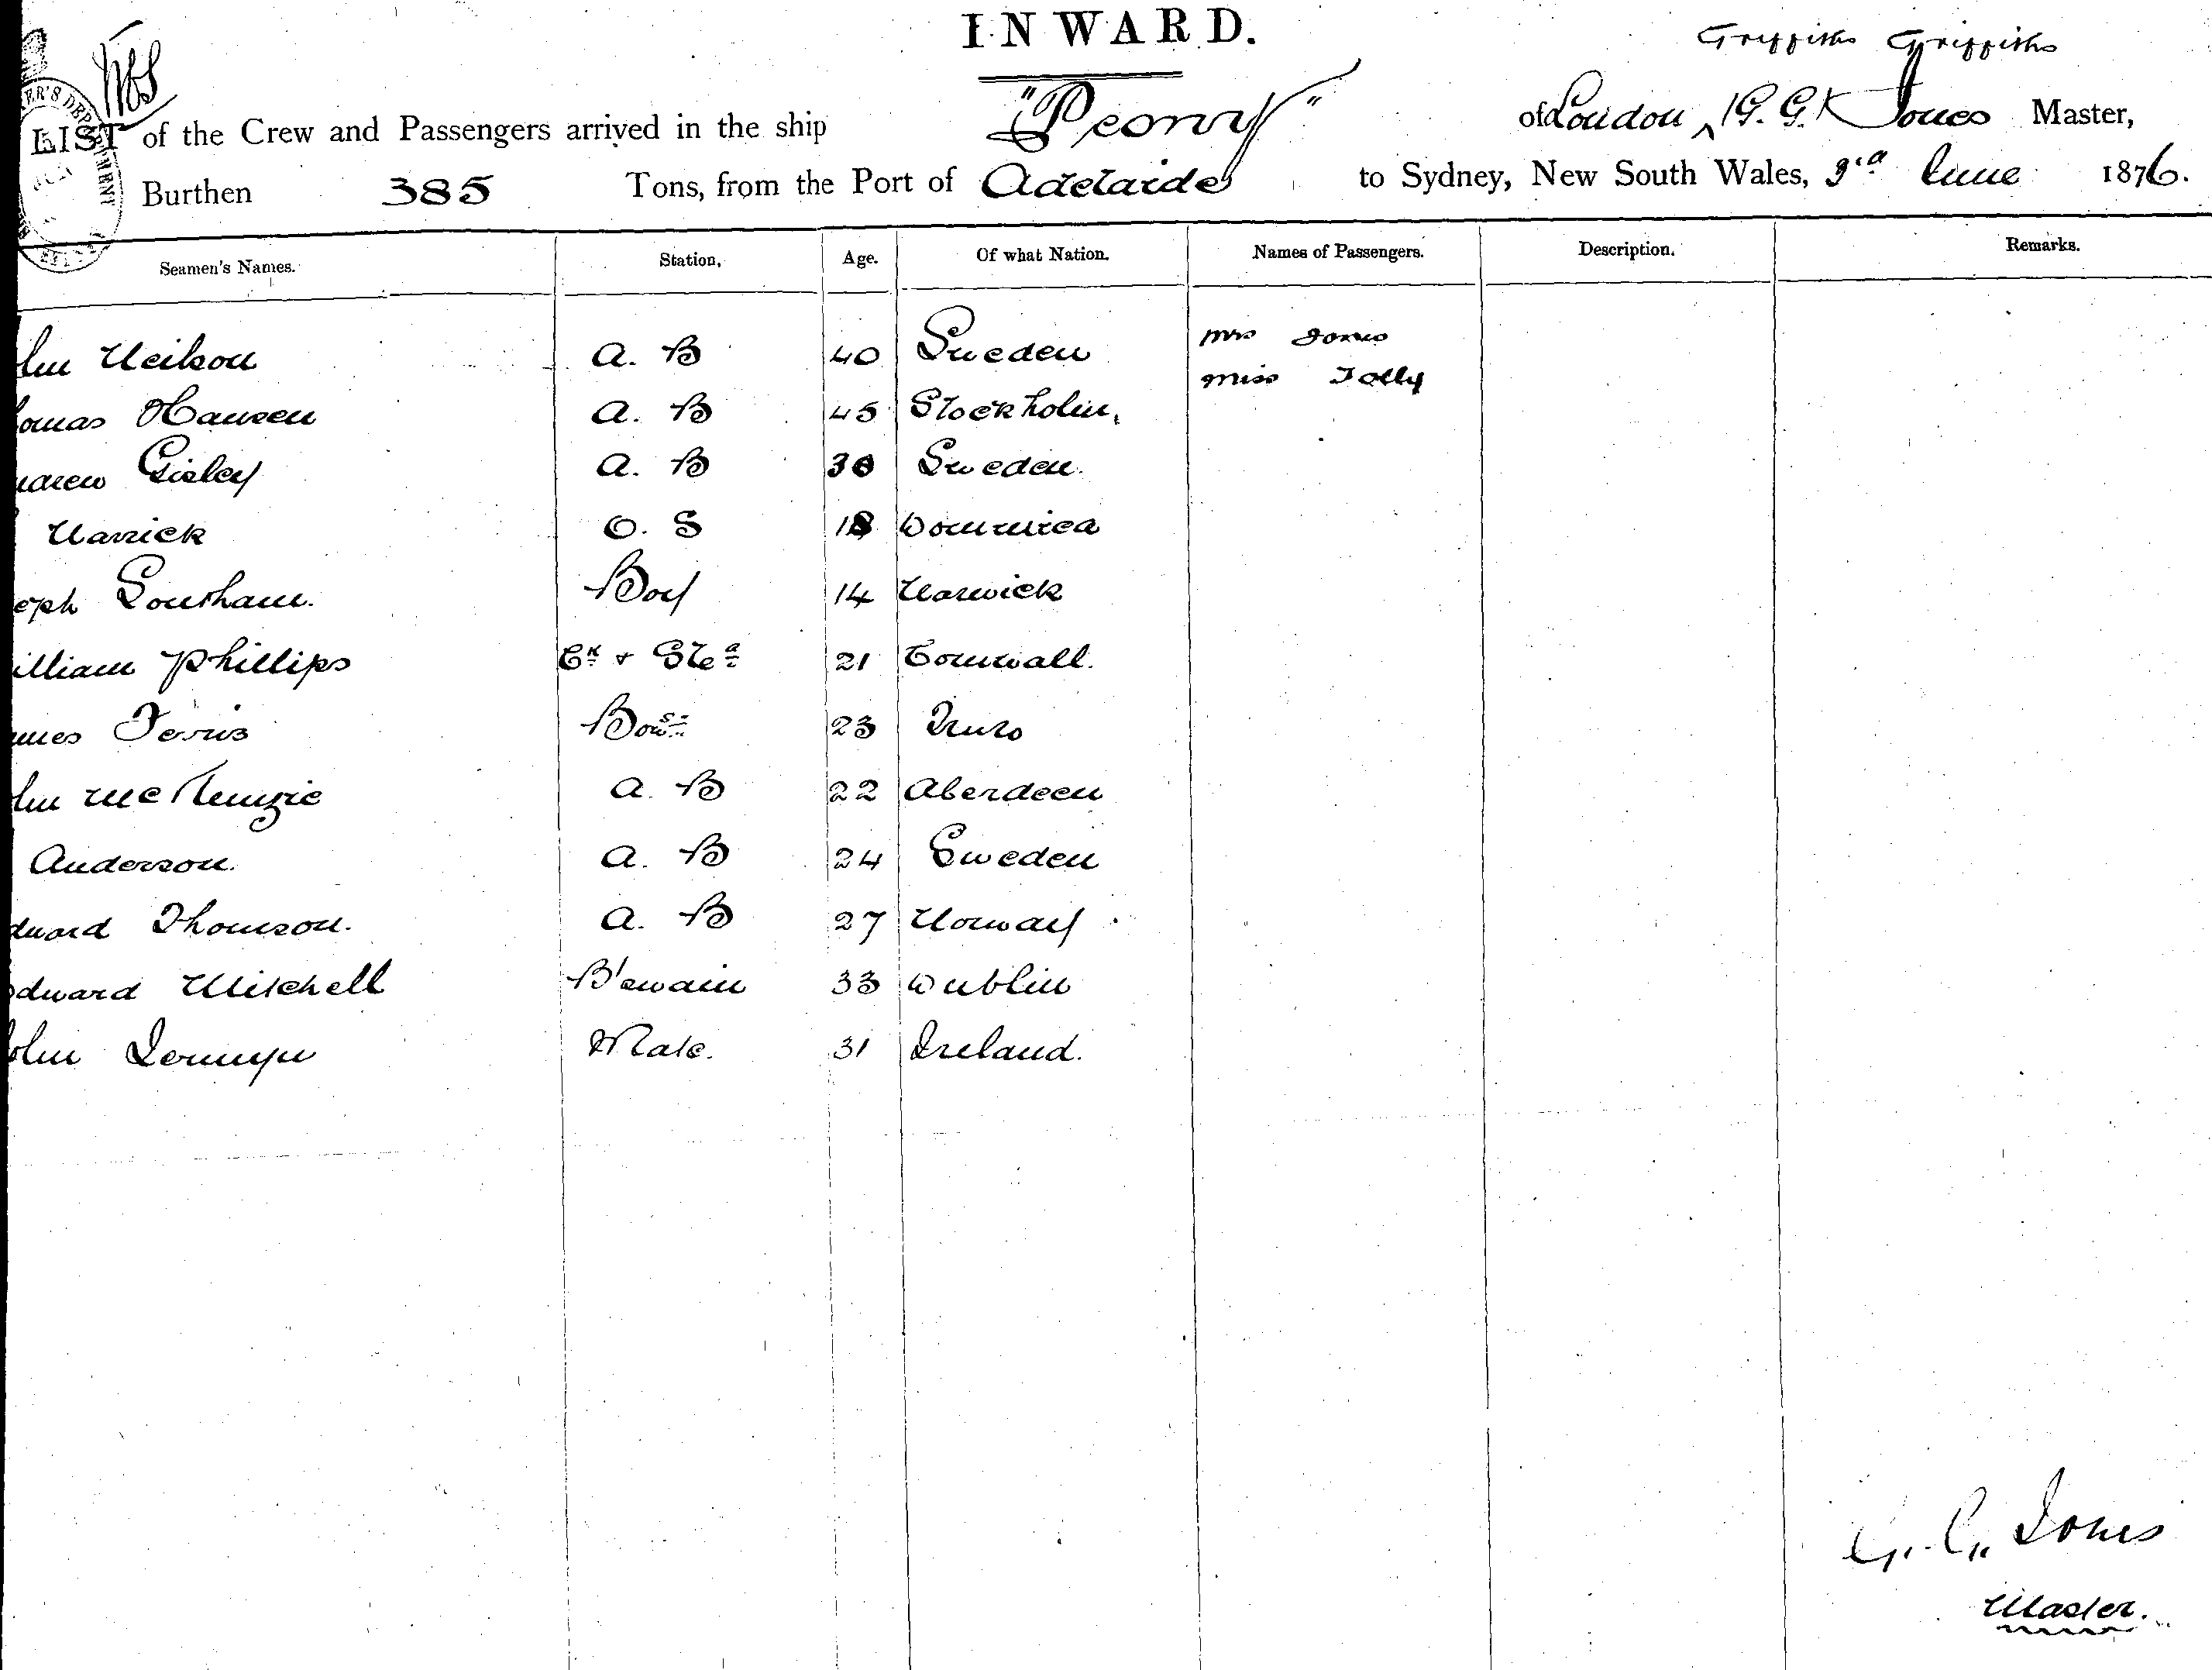 INWARD.
Griffiths Griffiths
LIST of the Crew and Passengers arrived in the ship "Peony" of London, G. G. Jones Master,
Burthen 385 Tons, from the Port of Adelaide to Sydney, New South Wales, 3rd June 1876.
Seamen's Names. Station, Age. Of what Nation. Names of Passengers. Description. Remarks.
hn Neilson A. B 40 Sweden Mrs Jones
Miss Jolly
omas Hansen A. B 45 Stockholm,
ndrew A. B 30 Sweden.
Warrick O. S 18 Dominica
eph Southam. Boy 14 Warwick
illiam Phillips Ck & Std 21 Cornwall.
mes Ferris Bosn 23 Truro
hn McKenzie A. B 22 Aberdeen
Anderson. A. B 24 Sweden
dward Thomson. A. B 27 Norway
dward Mitchell B'swain 33 Dublin
ohn Jermyn Mate. 31 Ireland.
G. G. Jones
Master.